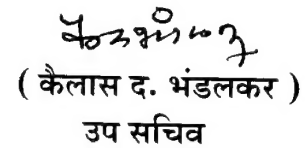 ( कैलास द. भंडलकर )
उप सचिव